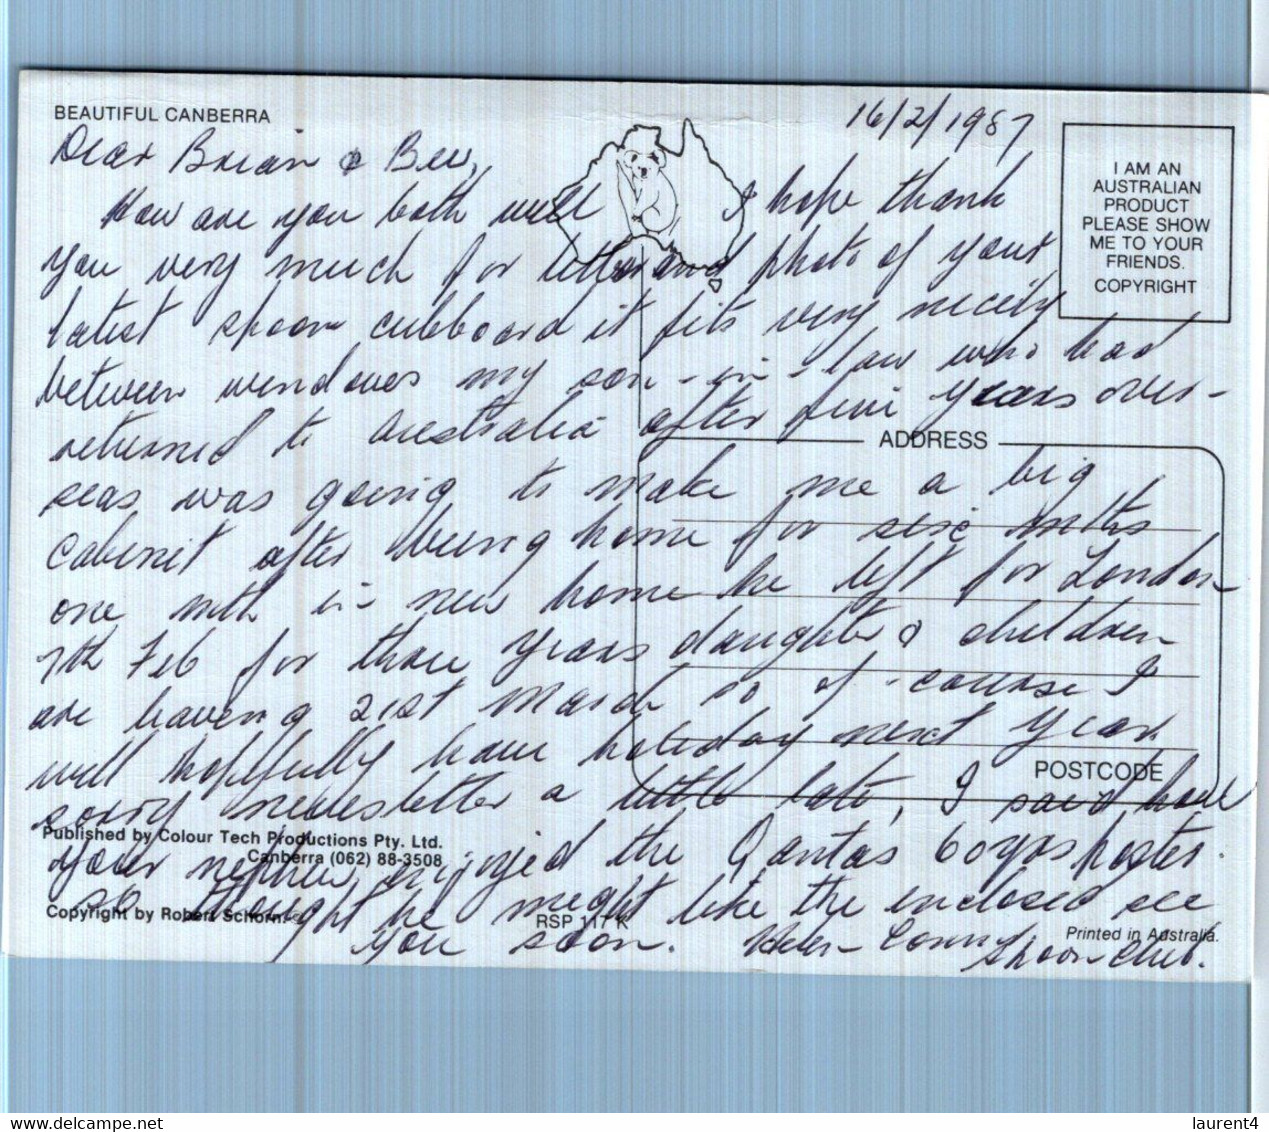 BEAUTIFUL CANBERRA
16/2/1987
I AM AN
AUSTRALIAN
PRODUCT
PLEASE SHOW
ME TO YOUR
FRIENDS.
COPYRIGHT
Dear Brian & Bev,
How are you both well I hope thank
you very much for letter and photo of your
latest spoon cubboard it fits very nicely
between windows my son-in-law who had
returned to Australia after five years over-
seas, was going to make me a big
cabinet after being home for six mths
one mth in new home he left for London
7th Feb for three years daughter & children
are leaving 21st March so of course I
will hopefully have holiday next year
sorry newsletter a little late, I said have
your nephew enjoyed the Qantas 60yrs poster.
so thought he might like the enclosed see
you soon. Spoon Club.
ADDRESS
POSTCODE
Published by Colour Tech Productions Pty. Ltd.
Canberra (062) 88-3508
Copyright by Robert
RSP 117 K
Printed in Australia.
laurent4